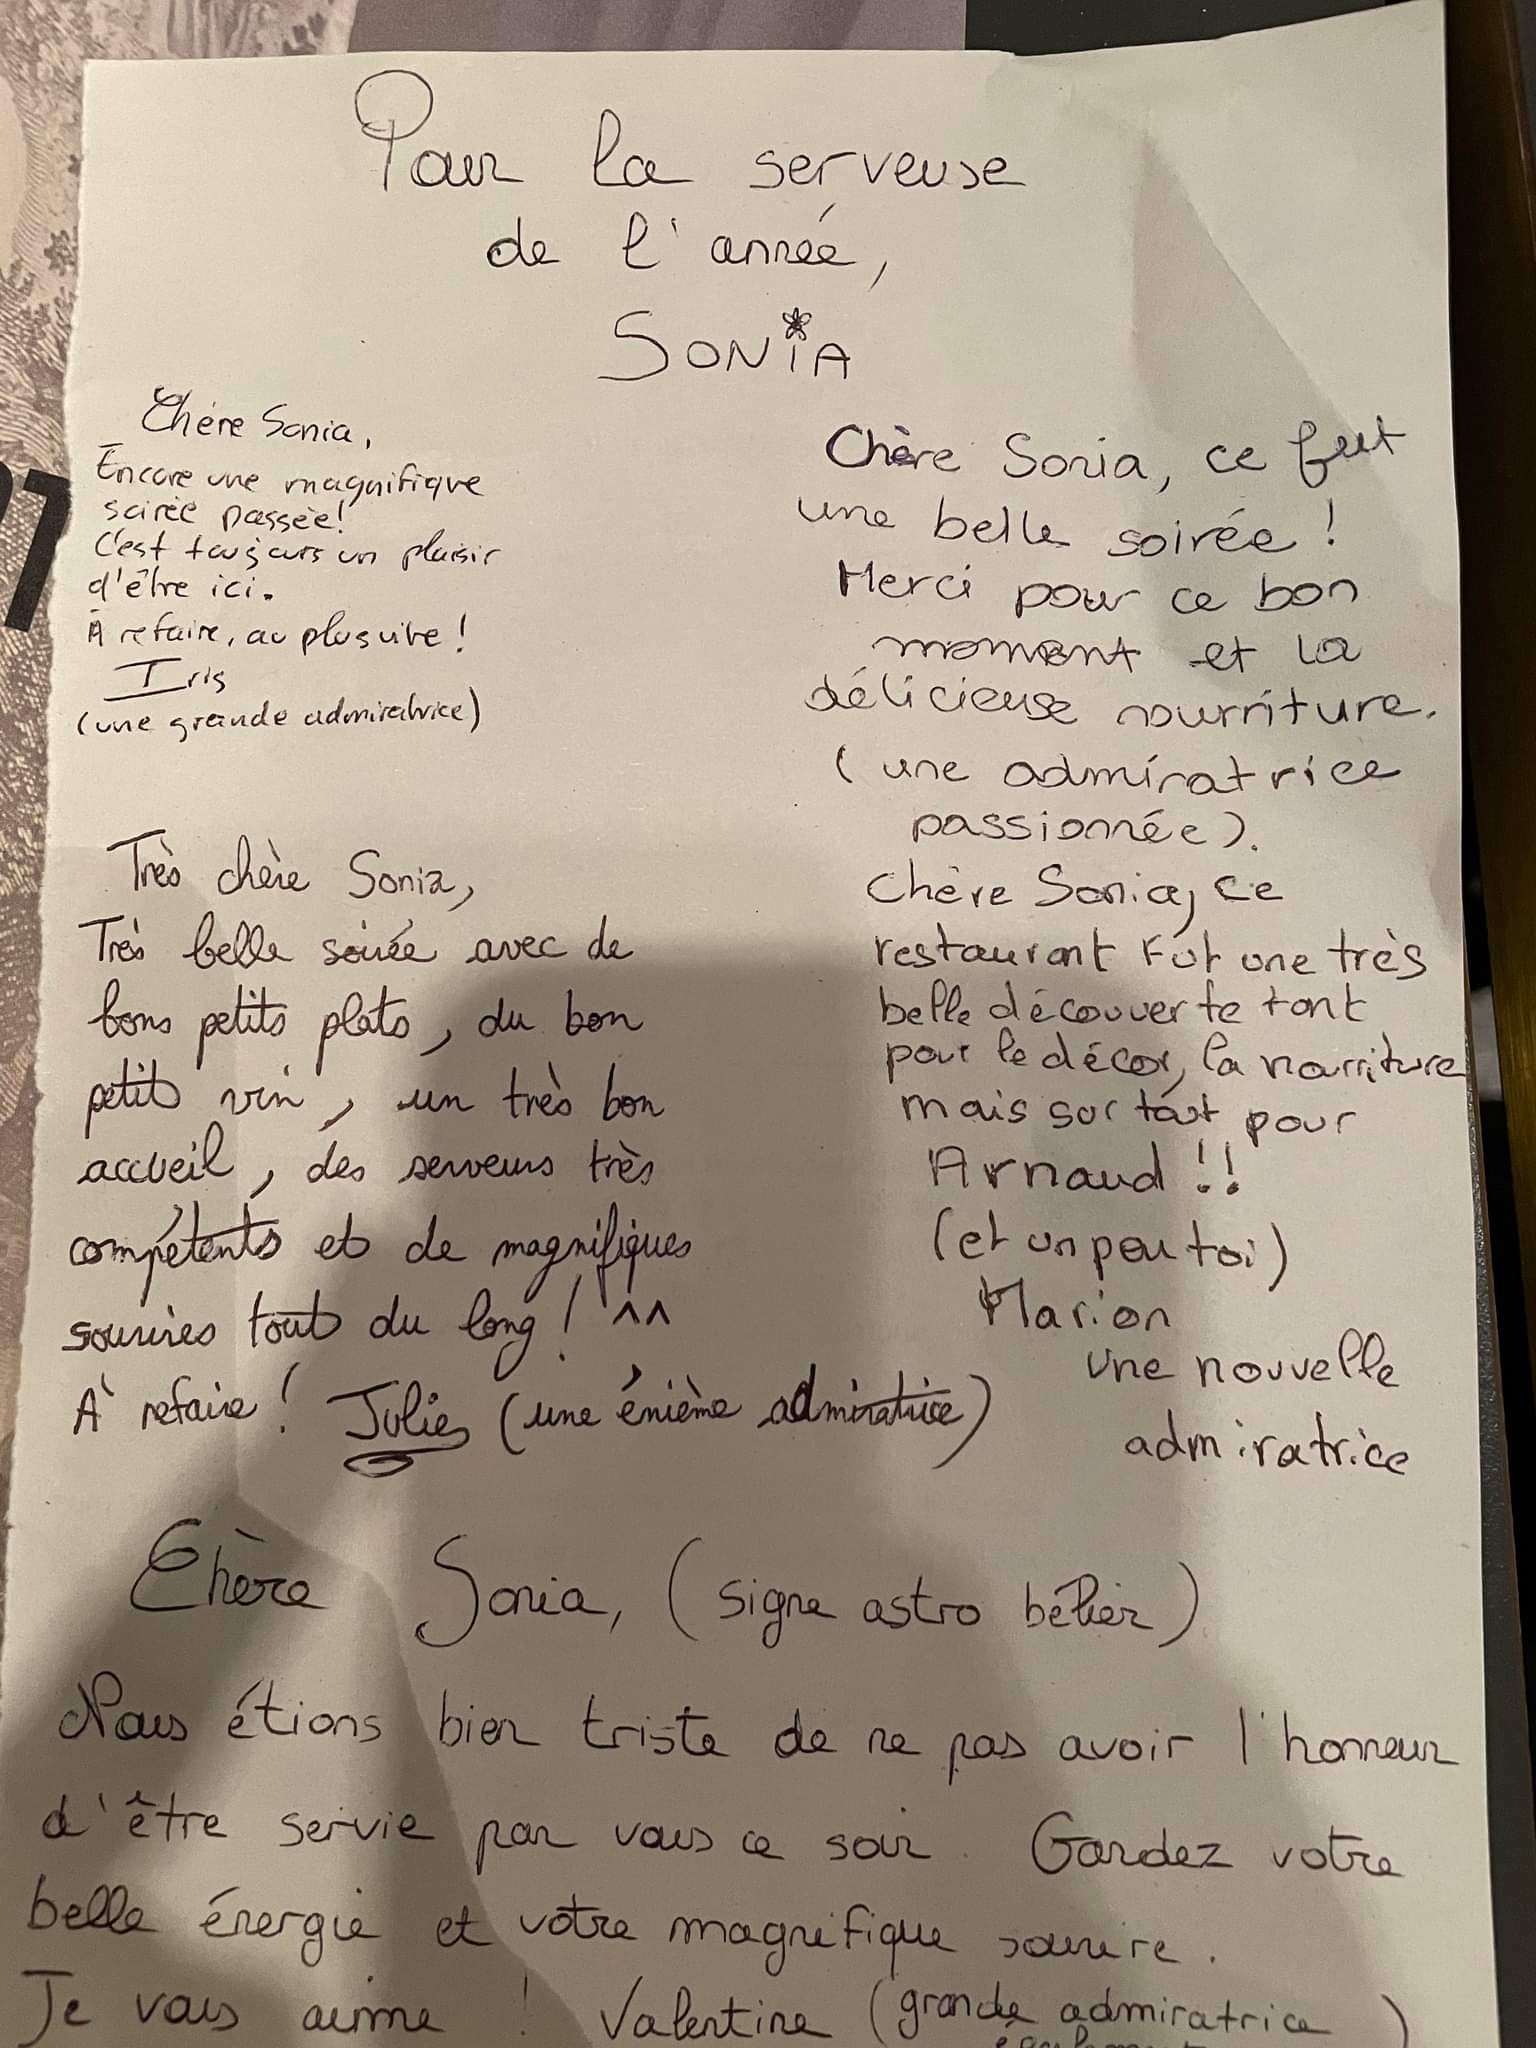 Pour la serveuse
de l'année,
SONiA
Chère Sonia,
Encore une magnifique
soirée passée!
C'est toujours un plaisir
d'être ici.
À refaire, au plus vite !
Iris
(une grande admiratrice)
Chère Sonia, ce fut
une belle soirée !
Merci pour ce bon
moment et la
délicieuse nourriture.
(une admiratrice
passionnée).
Très chère Sonia,
Très belle soirée avec de
bons petits plats, du bon
petit vin, un très bon
accueil, des serveurs très
compétents et de magnifiques
sourires tout du long ! ^^
À refaire ! Julie (une énième admiratrice)
Chère Sonia, ce
restaurant fut une très
belle découverte tant
pour le décor, la nourriture
mais surtout pour
Arnaud !!
(et un peu toi)
Marion
une nouvelle
admiratrice
Chère Sonia, (signe astro bélier)
Nous étions bien triste de ne pas avoir l'honneur
d'être servie par vous ce soir. Gardez votre
belle énergie et votre magnifique sourire.
Je vous aime ! Valentine (grande admiratrice
également)